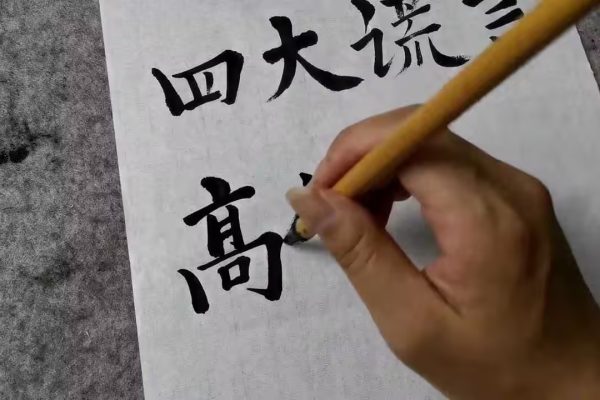 四大谎言
高